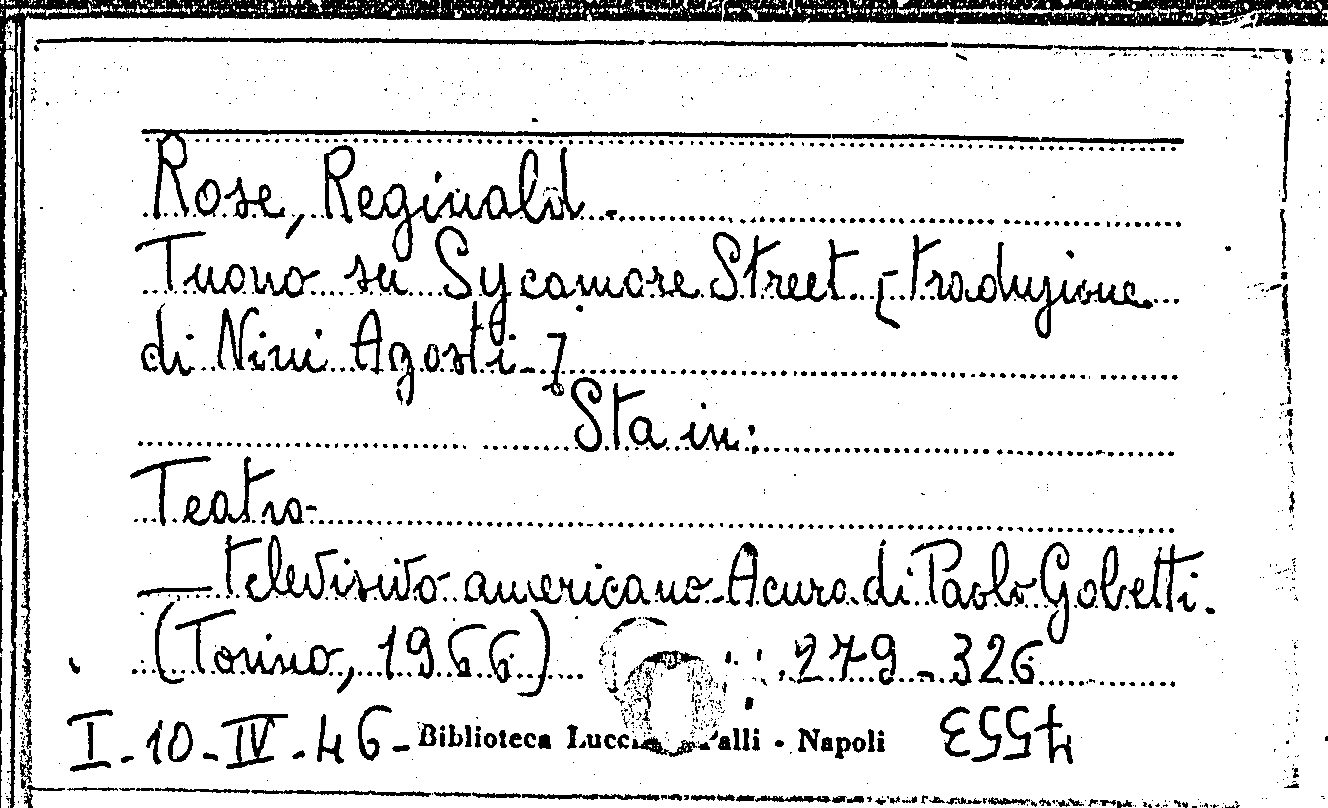 Rose, Reginald -
Tuono su Sycamore Street [traduzione
di Nini Agosti-]
Sta in:
Teatro
— televisivo americano - A cura di Paolo Gobetti.
(Torino, 1966) 279-326
I-10-IV-46- Biblioteca Palli - Napoli
4553